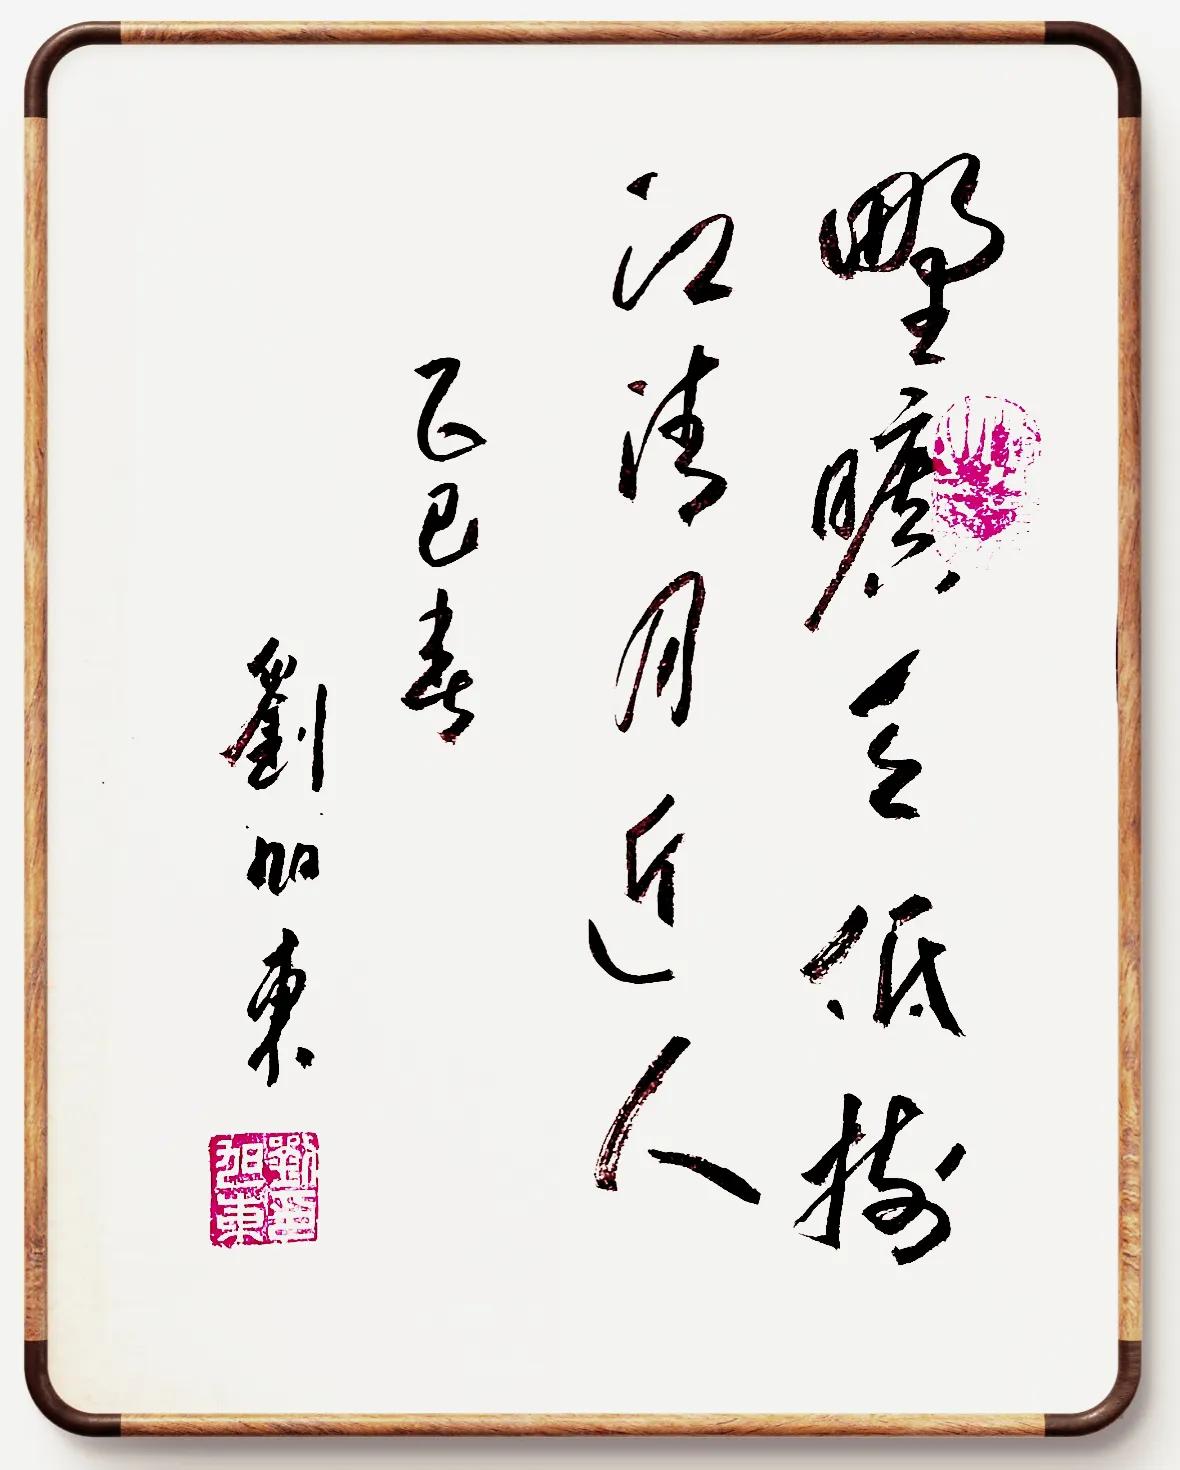 野曠天低樹
江清月近人
乙巳春
劉旭東
劉
旭東